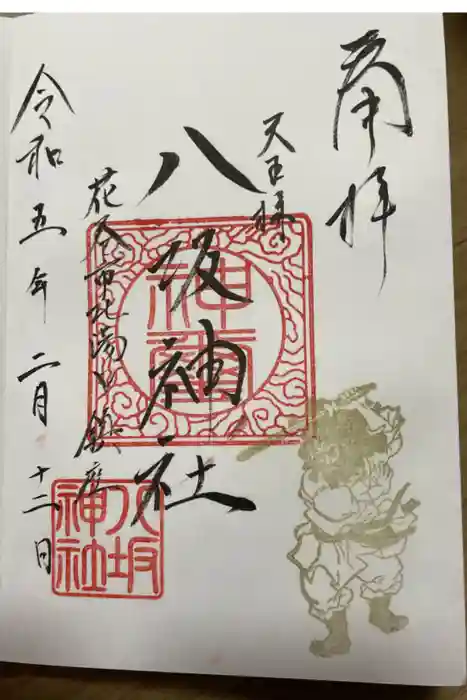 奉拝
天王様
八坂神社
花巻市北湯口鎮座
令和五年二月十二日
八坂
神社